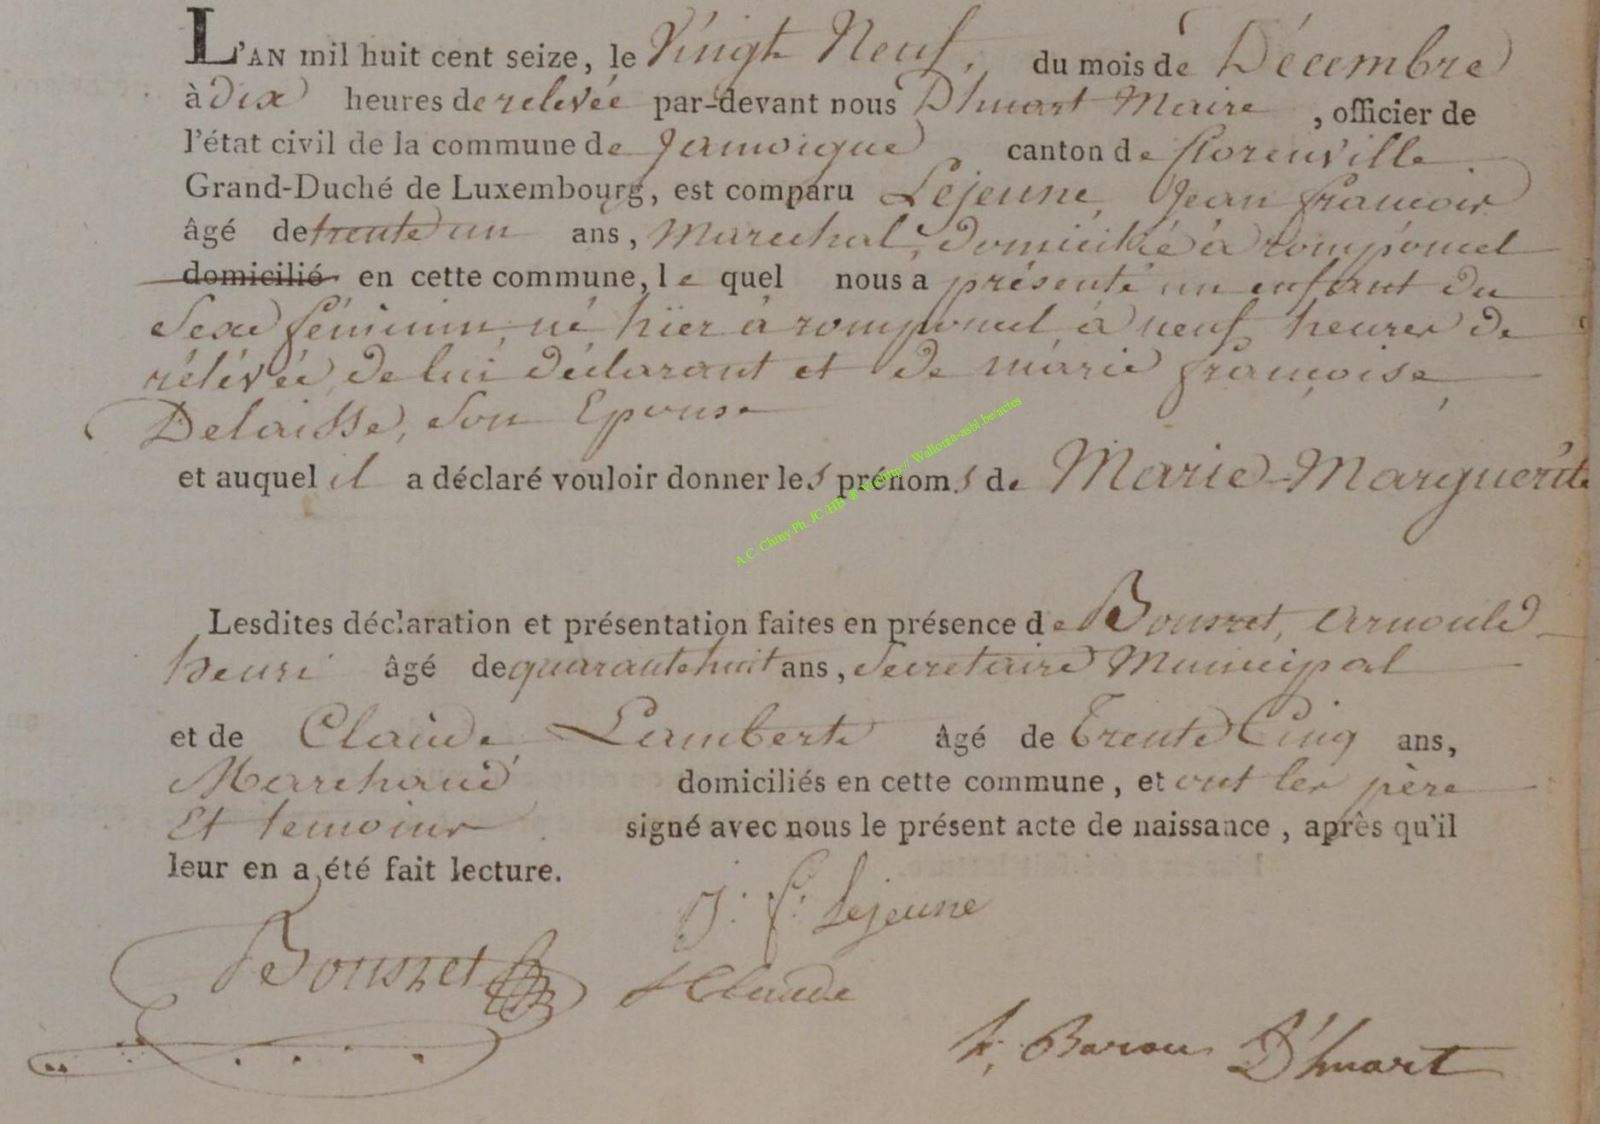 L'AN mil huit cent seize, le Vingt Neuf, du mois de Décembre
à dix heures de relevée par-devant nous D'huart Maire, officier de
l'état civil de la commune de Jamoigne canton de florenville
Grand-Duché de Luxembourg, est comparu Lejeune, Jean françois
âgé de trente un ans, Marechal, domicilié à romponcel
domicilié en cette commune, le quel nous a présenté un enfant du
Sexe féminin né hïer à romponcel à neuf heures de
rélévée, de lui déclarant et de marie françoise
Delaisse, son Epouse
et auquel il a déclaré vouloir donner les prénoms de Marie-Marguerite
A.C. Chiny Ph. JC HB Wallonia-asbl.be/actes
Lesdites déclaration et présentation faites en présence de Bousret, arnould
henri âgé de quarante huit ans, Secretaire Municipal
et de Claude Lambert âgé de Trente Cinq ans,
Marchand domiciliés en cette commune, et ont les père
Et temoins signé avec nous le présent acte de naissance, après qu'il
leur en a été fait lecture.
J. f. Lejeune
Bousret
Claude
h. Baron D'huart